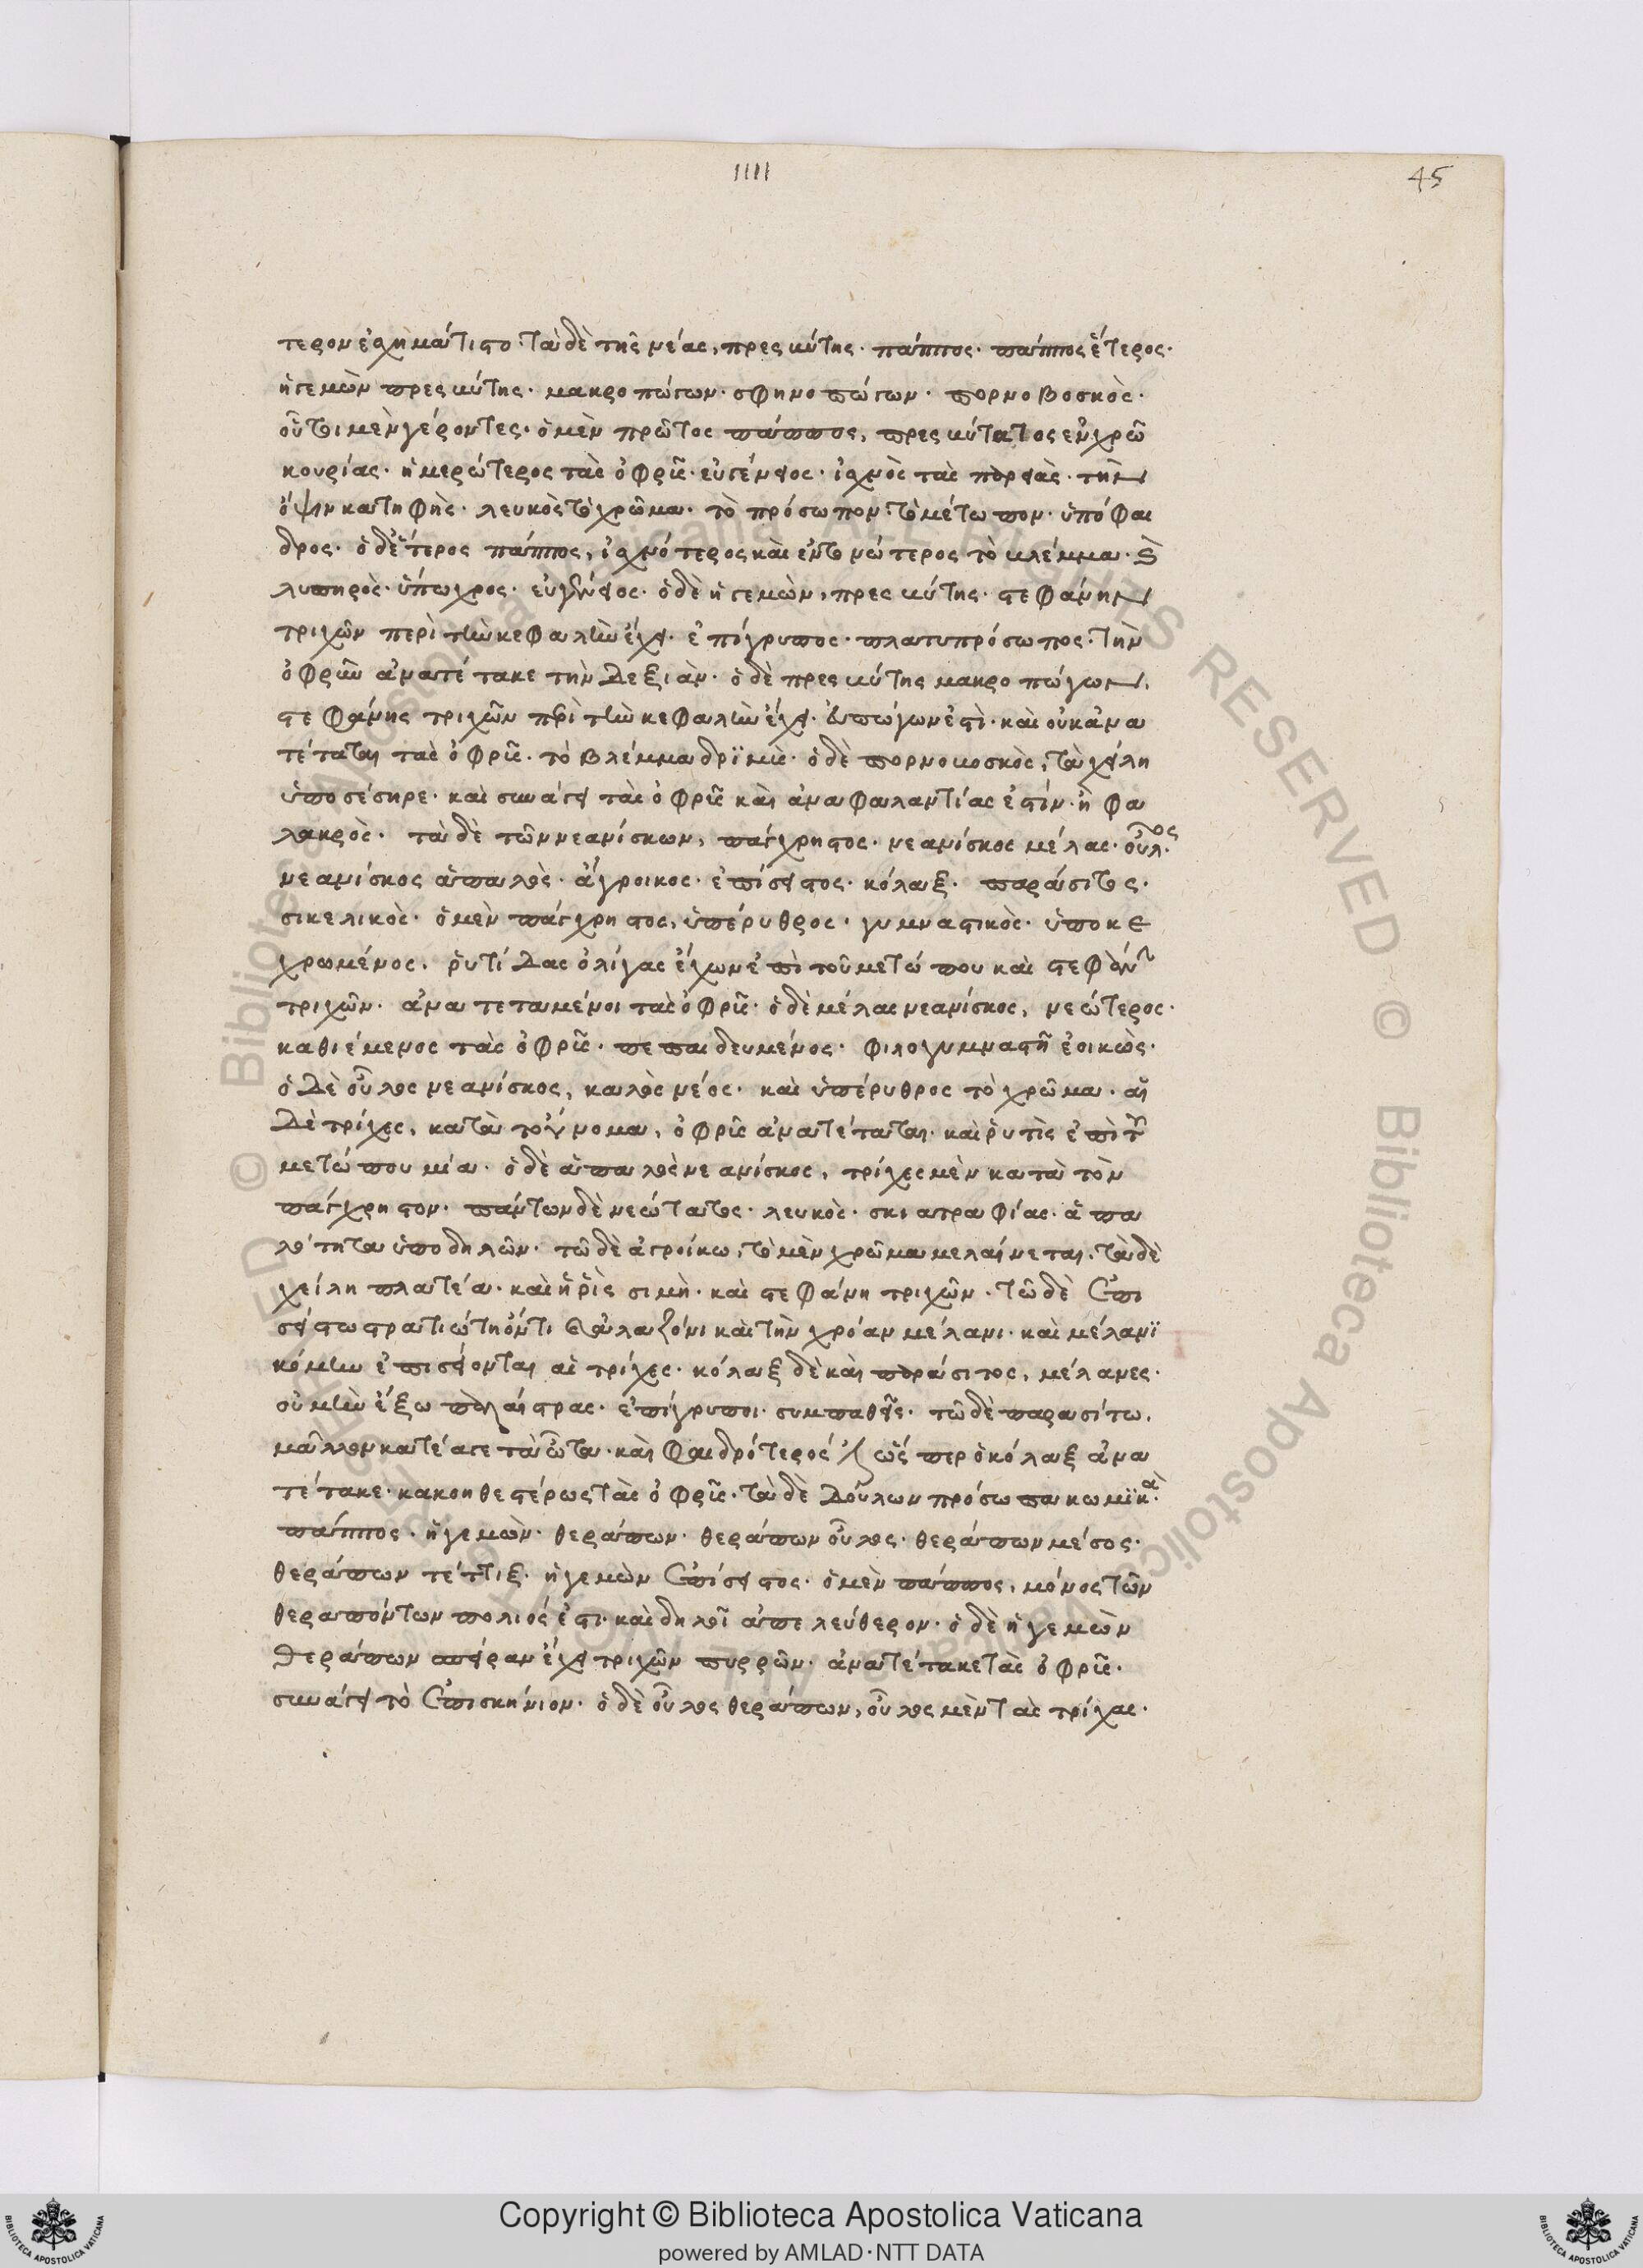 IIII
45
τερον ἐσχημάτιστο· τὰ δὲ τῆς νέας, πρεσβύτης· πάππος· πάππος ἕτερος·
ἡγεμὼν πρεσβύτης· μακροπώγων· σφηνοπώγων· πορνοβοσκὸς·
οὗτοι μὲν γέροντες· ὁ μὲν πρῶτος πάππος, πρεσβύτατος ἐν χρῶ
κουρίας· ἡμερώτερος τὰς ὀφρῦς· εὐγένειος· ἰσχνὸς τὰς παρειὰς· τὴν
ὄψιν κατηφὴς· λευκὸς τὸ χρῶμα· τὸ πρόσωπον· τὸ μέτωπον· ὑπόφαι
δρος· ὁ δ' ἕτερος πάππος, ἰσχνότερος καὶ ἐντονώτερος τὸ βλέμμα· καὶ
λυπηρὸς· ὕπωχρος· εὐγένειος· ὁ δὲ ἡγεμὼν, πρεσβύτης· στεφάνην
τριχῶν περὶ τὴν κεφαλὴν ἔχει· ἐπίγρυπος· πλατυπρόσωπος· τὴν
ὀφρῦν ἀνατέτακε τὴν δεξιὰν· ὁ δὲ πρεσβύτης μακροπώγων,
στεφάνης τριχῶν περὶ τὴν κεφαλὴν ἔχει· εὐπώγων ἐστὶ· καὶ οὐκ ἀνα
τέταται τὰς ὀφρῦς· τὸ βλέμμα δρϊμὺς· ὁ δὲ πορνοβοσκὸς, τὰ χείλη
ὑποσέσηρε· καὶ συνάγει τὰς ὀφρῦς καὶ ἀναφαλαντίας ἐστίν· ἢ φα
λακρὸς· τὰ δὲ τῶν νεανίσκων, πάγχρηστος· νεανίσκος μέλας· οὖλος
νεανίσκος ἁπαλὸς· ἄγροικος· ἐπίσειστος· κόλαξ· παράσιτος·
σικελικὸς· ὁ μὲν πάγχρηστος, ὑπέρυθρος· γυμναστικὸς· ὑποκε
χρωμένος· ῥυτίδας ὀλίγας ἔχων ἐπὶ τοῦ μετώπου καὶ στεφάνην
τριχῶν· ἀνατεταμένοι τὰς ὀφρῦς· ὁ δὲ μέλας νεανίσκος, νεώτερος·
καθιέμενος τὰς ὀφρῦς· πεπαιδευμένος· φιλογυμναστῆ ἐοικὼς·
ὁ δὲ οὖλος νεανίσκος, καλὸς νέος· καὶ ὑπέρυθρος τὸ χρῶμα· αἱ
δὲ τρίχες, κατὰ τοὔνομα, ὀφρῦς ἀνατέταται· καὶ ῥυτὶς ἐπὶ τοῦ
μετώπου μία· ὁ δὲ ἁπαλὸς νεανίσκος, τρίχες μὲν κατὰ τὸν
πάγχρηστον· πάντων δὲ νεώτατος· λευκὸς· σκιατραφίας· ἁπα
λότητα ὑποδηλῶν· τῶ δὲ ἀγροίκω, τὸ μὲν χρῶμα μελαίνεται· τὰ δὲ
χείλη πλατέα· καὶ ἡ ῥὶς σιμὴ· καὶ στεφάνη τριχῶν· τῶ δὲ ἐπι
σείστω στρατιώτη ὄντι καὶ ἀλαζόνι καὶ τὴν χρόαν μέλανι· καὶ μέλανϊ
κόμην ἐπισείονται αἱ τρίχες· κόλαξ δὲ καὶ παράσιτος, μέλανες·
οὐ μὴν ἔξω παλαίστρας· ἐπίγρυποι· συμπαθεῖς· τῶ δὲ παρασίτω,
μᾶλλον κατέαγε τὰ ὦτα· καὶ φαιδρότερός ἐστιν ὥσπερ ὁ κόλαξ ἀνα
τέτακε· κακοηθεστέρως τὰς ὀφρῦς· τὰ δὲ δούλων πρόσωπα κωμϊκὰ·
πάππος· ἡγεμὼν· θεράπων· θεράπων οὖλος· θεράπων μέσος·
θεράπων τέττιξ· ἡγεμὼν ἐπίσειστος· ὁ μὲν πάππος, μόνος τῶν
θεραπόντων πολιός ἐστι· καὶ δηλοῖ ἀπελεύθερον· ὁ δὲ ἡγεμὼν
θεράπων σπεῖραν ἔχει τριχῶν πυρρῶν· ἀνατέτακε τὰς ὀφρῦς·
συνάγει τὸ ἐπισκήνιον· ὁ δὲ οὖλος θεράπων, οὖλος μὲν τὰς τρίχας·
Copyright © Biblioteca Apostolica Vaticana
powered by AMLAD·NTT DATA